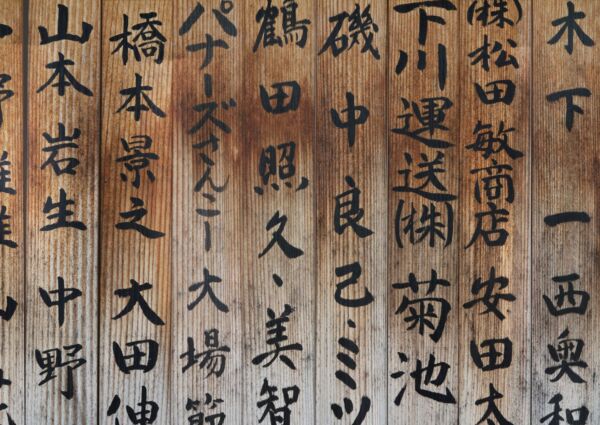 木下 一 西奥和
(株)松田敏商店 安田太
下川運送(株) 菊池
磯中良己、ミツ
鶴田照久、美智
パナーズさんこー 大場節
橋本景之 大田伸
山本岩生 中野
野雄